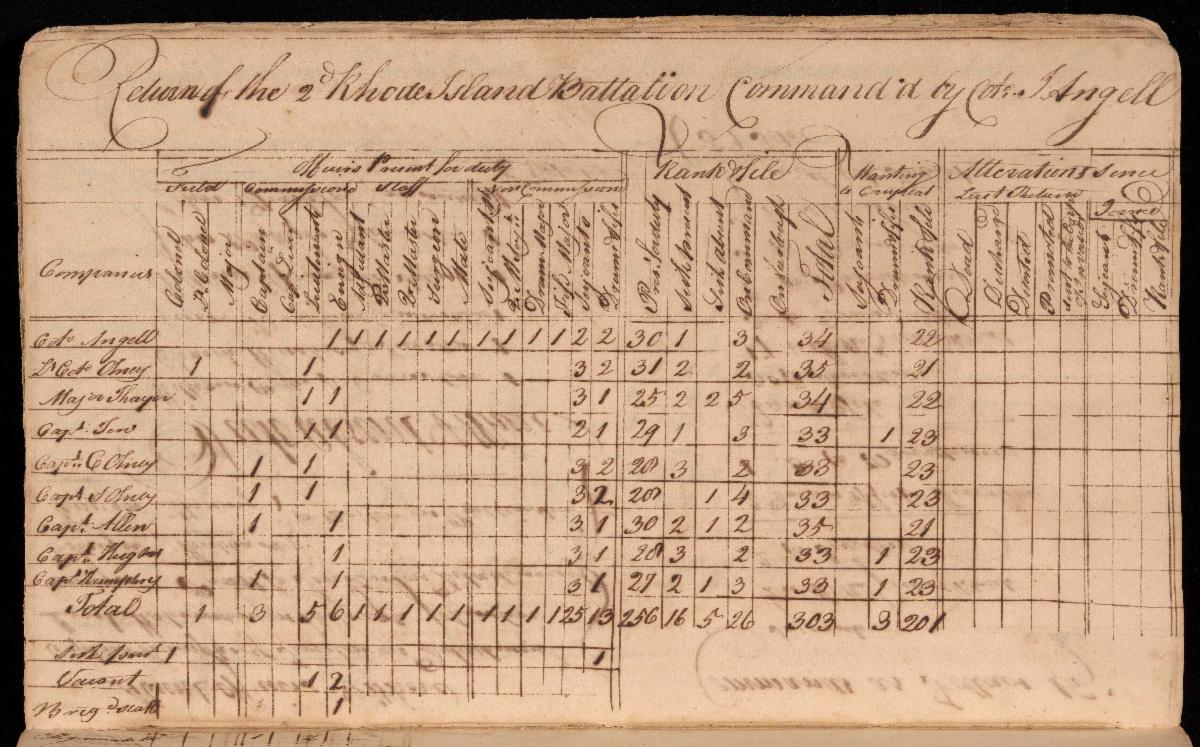 Return of the 2d Rhode Island Battalion Command'd by Colo. I Angell
Officirs Present for duty Rank & File Wanting to Compleat Alterations Sence Last Return
Field Commissiond Staff Non Commissiond Joined
Companies Colonel Lt Colonel Major Captain Capt Lieut Lieutenant Ensign Adjutant Pay Master Qr Master Surgeon Mate Serjeant Majr Qr Mr Serjt Drum Major Fife Major Serjeants Drum & Fifes Pres. for duty Sick Present Sick absent On Command On furlough Total Serjeants Drum & fifes Rank & File Dead Discharg'd Deserted Promoted Serjeants Drum & fifes Rank & File
Colo Angell 1 1 1 1 1 1 1 1 1 1 2 2 30 1 3 34 22
Lt Colo Olney 1 1 3 2 31 2 2 35 21
Major Thayer 1 1 3 1 25 2 2 5 34 22
Capt. Tew 1 1 2 1 29 1 3 33 1 23
Capt. C Olney 1 1 3 2 28 3 2 33 23
Capt. S Olney 1 1 3 2 28 1 4 33 23
Capt. Allen 1 1 3 1 30 2 1 2 35 21
Capt. Hughes 1 3 1 28 3 2 33 1 23
Capt. Humphry 1 1 3 1 27 2 1 3 33 1 23
Total 1 3 5 6 1 1 1 1 1 1 1 1 1 25 13 256 16 5 26 303 3 201
Sick Presnt 1 1
Vacant 1 2
Brigd Staff 1